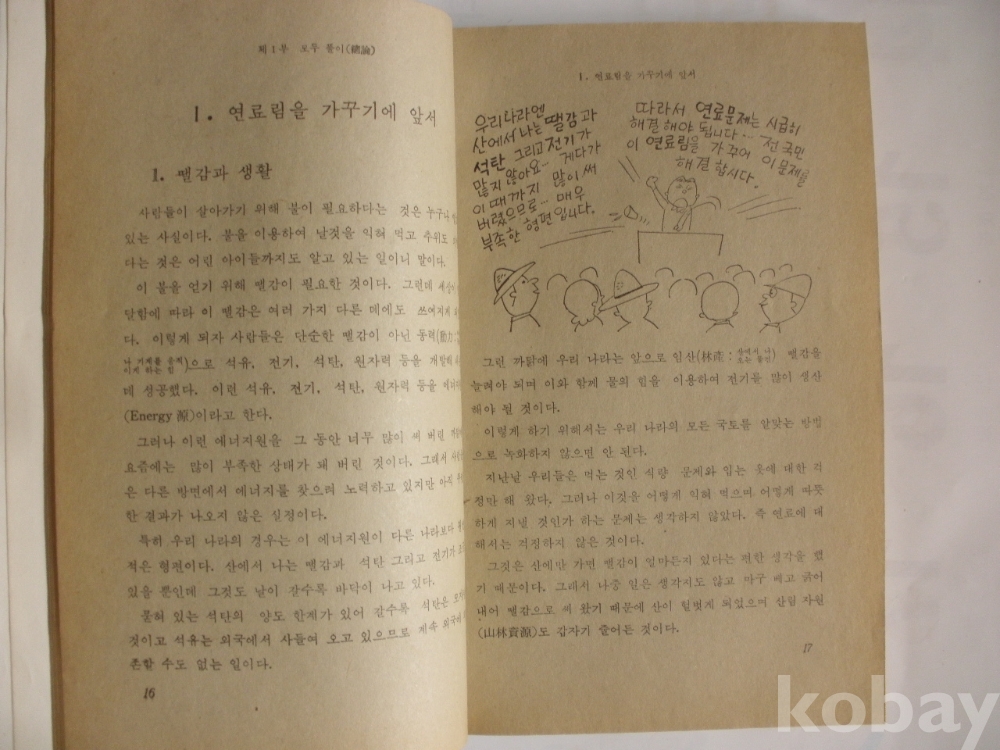 제 1 부 모두 풀이(總論)
1. 연료림을 가꾸기에 앞서
1. 땔감과 생활
사람들이 살아가기 위해 불이 필요하다는 것은 누구나
있는 사실이다. 불을 이용하여 날것을 익혀 먹고 추위도
다는 것은 어린 아이들까지도 알고 있는 일이니 말이다.
이 불을 얻기 위해 땔감이 필요한 것이다. 그런데
달함에 따라 이 땔감은 여러 가지 다른 데에도 쓰여지게
다. 이렇게 되자 사람들은 단순한 땔감이 아닌 동력(動力:
나 기계를 움직
이게 하는 힘)으로 석유, 전기, 석탄, 원자력 등을 개발해
데 성공했다. 이런 석유, 전기, 석탄, 원자력 등을
(Energy 源)이라고 한다.
그러나 이런 에너지원을 그 동안 너무 많이 써 버린
요즘에는 많이 부족한 상태가 돼 버린 것이다. 그래서
은 다른 방면에서 에너지를 찾으려 노력하고 있지만 아직
한 결과가 나오지 않은 실정이다.
특히 우리 나라의 경우는 이 에너지원이 다른 나라보다
적은 형편이다. 산에서 나는 땔감과 석탄 그리고 전기가
있을 뿐인데 그것도 날이 갈수록 바닥이 나고 있다.
묻혀 있는 석탄의 양도 한계가 있어 갈수록 석탄은
것이고 석유는 외국에서 사들여 오고 있으므로 계속 외국에
존할 수도 없는 일이다.
16
1. 연료림을 가꾸기에 앞서
우리나라엔
산에서 나는 땔감과
석탄 그리고 전기가
많지 않아요… 게다가
이때까지 많이 써
버렸으므로… 매우
부족한 형편입니다.
따라서 연료문제는 시급히
해결해야 됩니다… 전국민
이 연료림을 가꾸어 이 문제를
해결합시다.
그런 까닭에 우리 나라는 앞으로 임산(林產: 산에서 나
는 물건) 땔감을
늘려야 되며 이와 함께 물의 힘을 이용하여 전기를 많이 생산
해야 될 것이다.
이렇게 하기 위해서는 우리 나라의 모든 국토를 알맞는 방법
으로 녹화하지 않으면 안 된다.
지난날 우리들은 먹는 것인 식량 문제와 입는 옷에 대한 걱
정만 해 왔다. 그러나 이것을 어떻게 익혀 먹으며 어떻게 따뜻
하게 지낼 것인가 하는 문제는 생각하지 않았다. 즉 연료에 대
해서는 걱정하지 않은 것이다.
그것은 산에만 가면 땔감이 얼마든지 있다는 편한 생각을 했
기 때문이다. 그래서 나중 일은 생각지도 않고 마구 베고 긁어
내어 땔감으로 써 왔기 때문에 산이 헐벗게 되었으며 산림 자원
(山林資源)도 갑자기 줄어든 것이다.
17
kobay